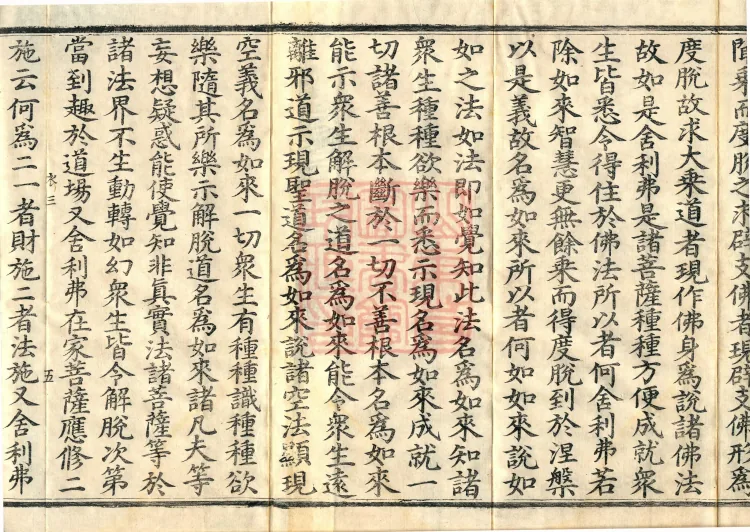 聞乘而度脫之求辟支佛者現辟支佛形爲
度脫故求大乘道者現作佛身爲說諸佛法
故如是舍利弗是諸菩薩種種方便成就衆
生皆悉令得住於佛法所以者何舍利弗若
除如來智慧更無餘乘而得度脫到於涅槃
以是義故名爲如來所以者何如如來說如
如之法如法即如覺知此法名爲如來知諸
衆生種種欲樂而悉示現名爲如來成就一
切諸善根本斷於一切不善根本名爲如來
能示衆生解脫之道名爲如來能令衆生遠
離邪道示現聖道名爲如來說諸空法顯現
空義名爲如來一切衆生有種種識種種欲
樂隨其所樂示解脫道名爲如來諸凡夫等
妄想疑惑能使覺知非眞實法諸菩薩等於
諸法界不生動轉如幻衆生皆令解脫次第
當到趣於道場又舍利弗在家菩薩應修二
衣三 五
施云何爲二一者財施二者法施又舍利弗